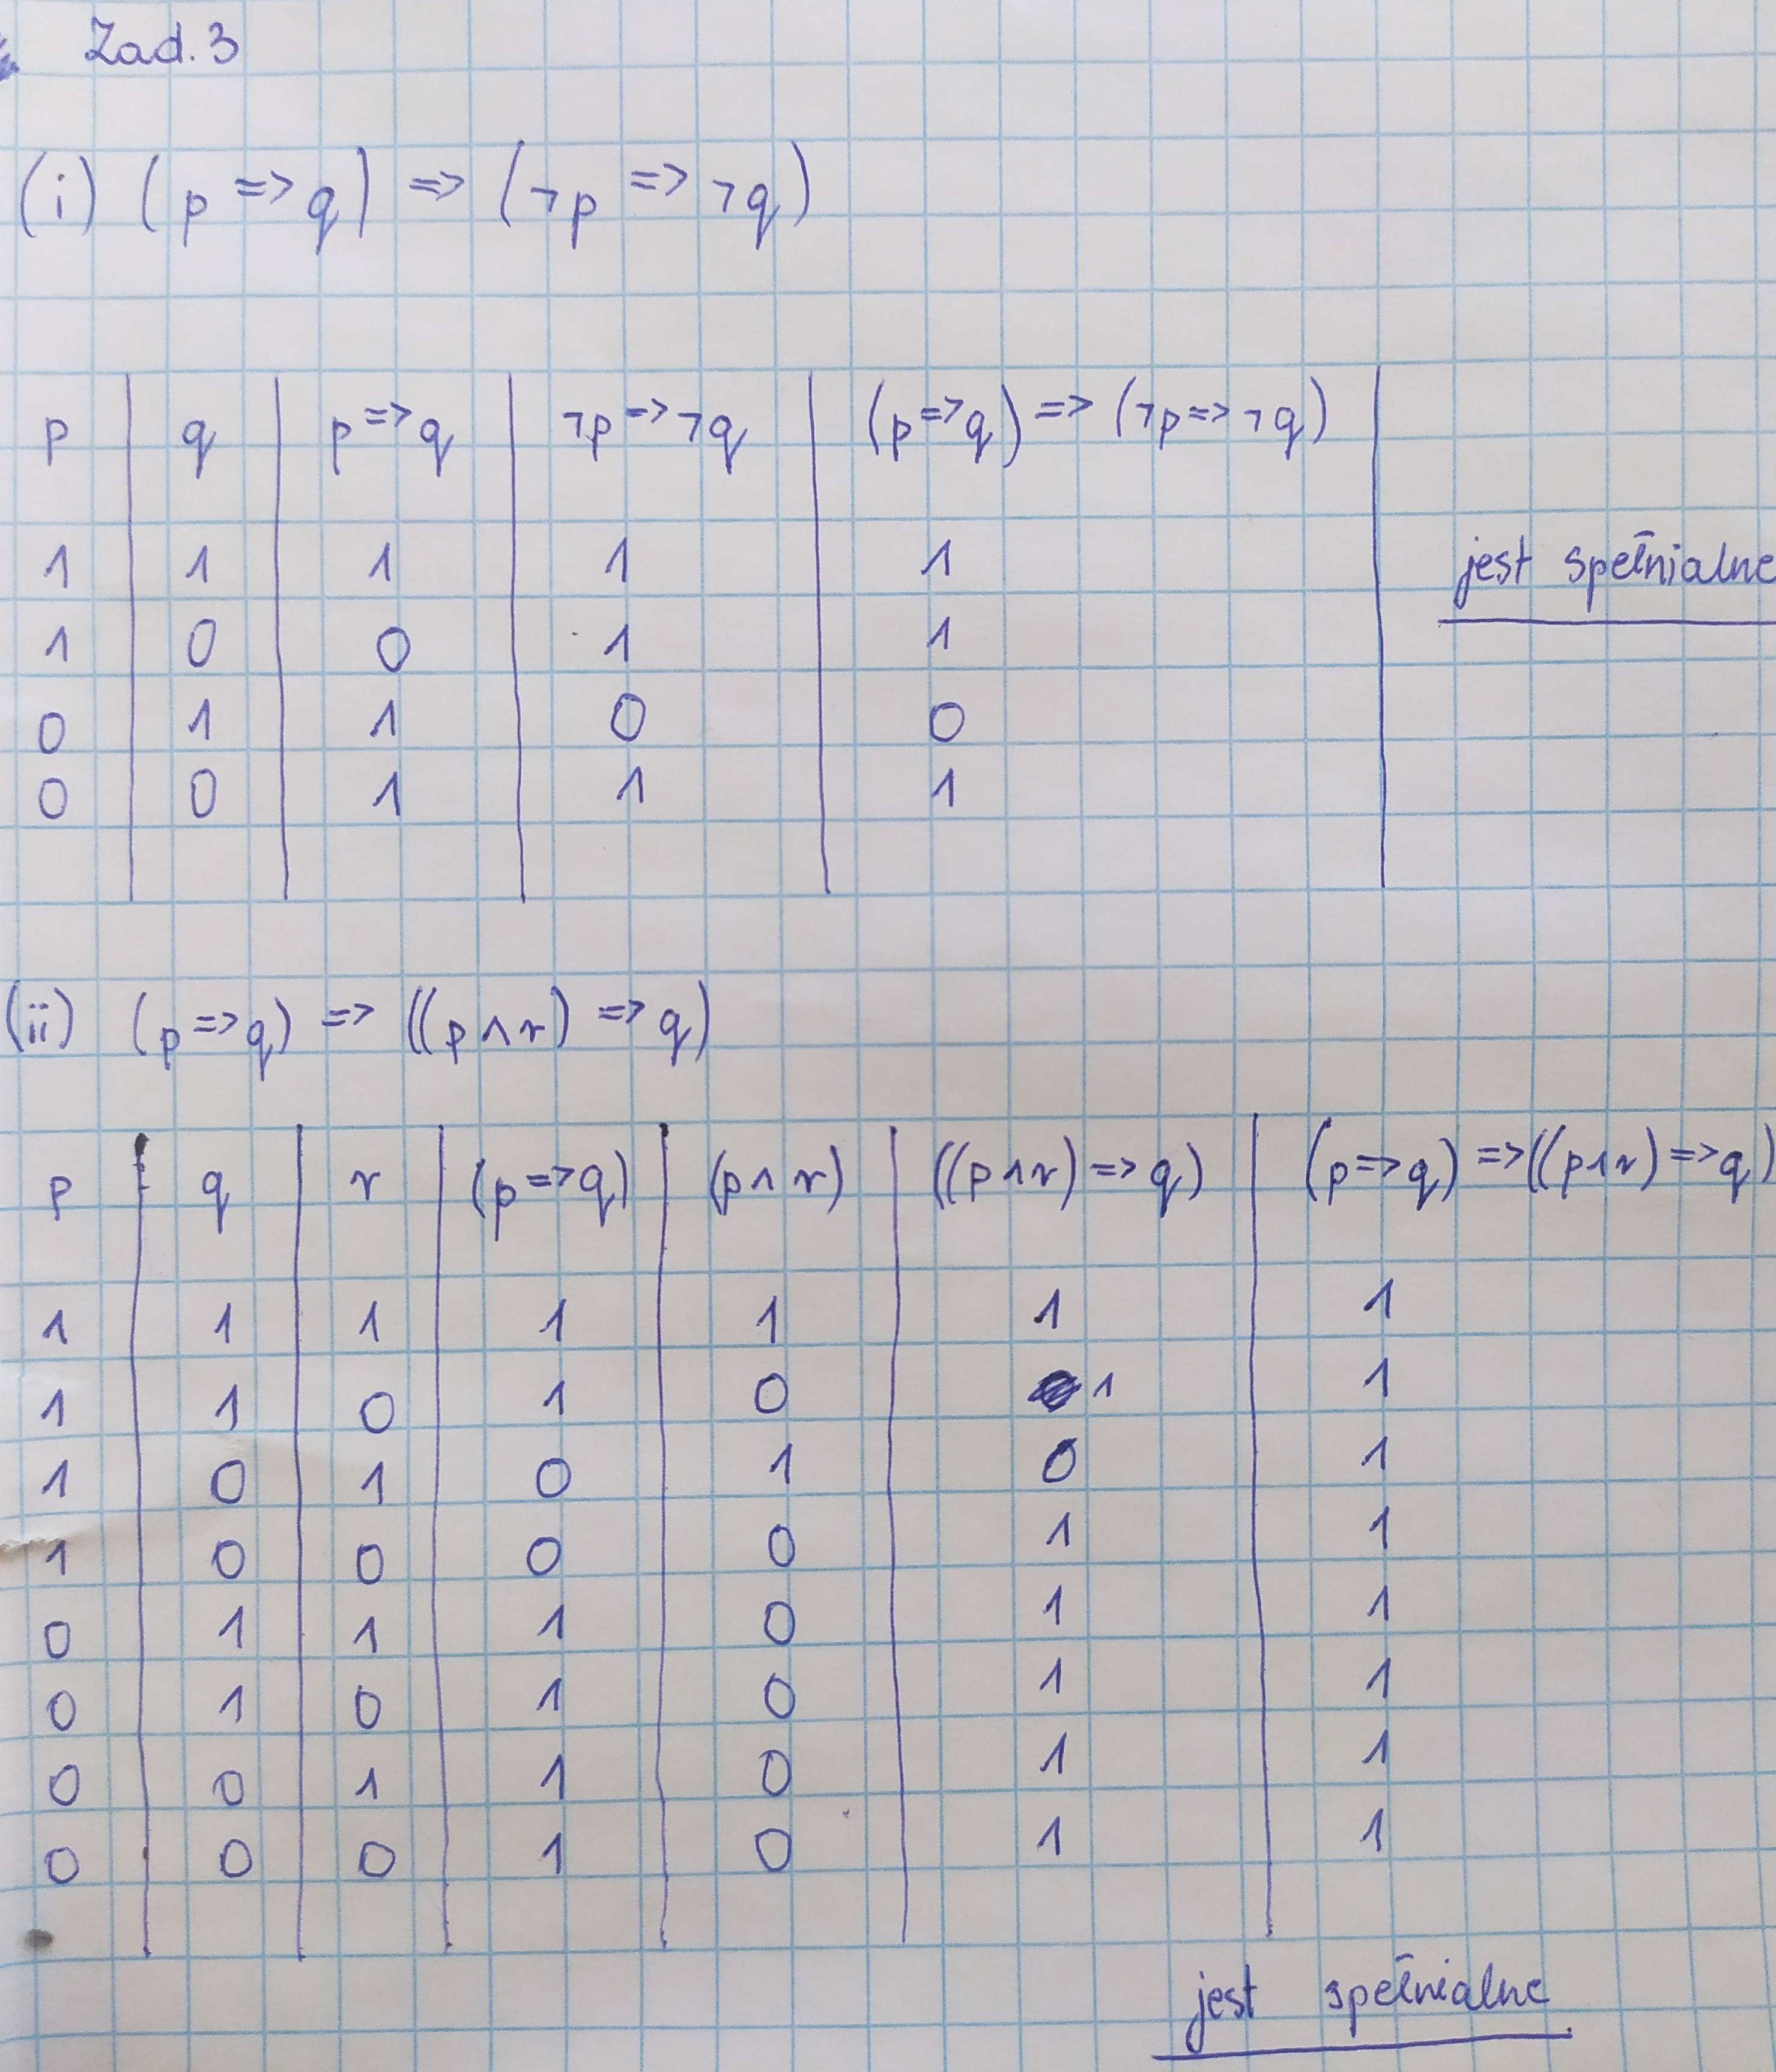 Zad. 3
(i) (p => q) => (¬p => ¬q)
p q p => q ¬p => ¬q (p => q) => (¬p => ¬q)
1 1 1 1 1 jest spełnialne
1 0 0 1 1
0 1 1 0 0
0 0 1 1 1
(ii) (p => q) => ((p ∧ r) => q)
p q r (p => q) (p ∧ r) ((p ∧ r) => q) (p => q) => ((p ∧ r) => q)
1 1 1 1 1 1 1
1 1 0 1 0 1 1
1 0 1 0 1 0 1
1 0 0 0 0 1 1
0 1 1 1 0 1 1
0 1 0 1 0 1 1
0 0 1 1 0 1 1
0 0 0 1 0 1 1
jest spełnialne